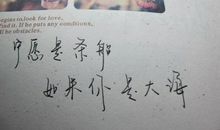 egins to look for love,
find it. If he puts any conditions,
ll be obstacles.
宁愿是茶船
如果你是大海